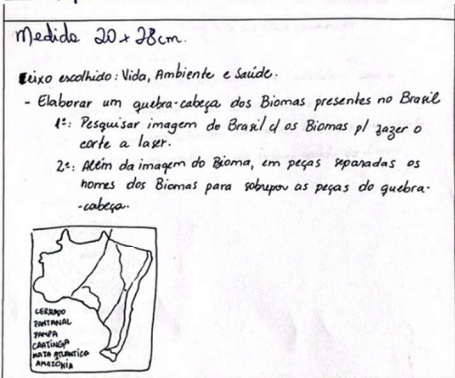 Medida 20 x 28cm.
Eixo escolhido: Vida, Ambiente e Saúde.
- Elaborar um quebra-cabeça dos Biomas presentes no Brasil
1º: Pesquisar imagem do Brasil c/ os Biomas p/ fazer o
corte a laser.
2º: Além da imagem do Bioma, em peças separadas os
nomes dos Biomas para sobrepor as peças do quebra-
-cabeça.
CERRADO
PANTANAL
PAMPA
CAATINGA
MATA ATLÂNTICA
AMAZÔNIA